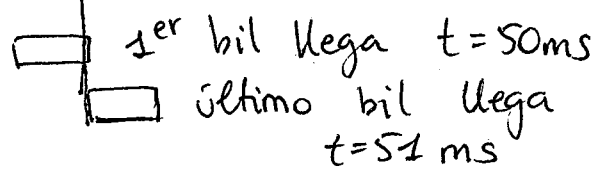 1er bil llega t=50ms
último bil llega
t=51 ms